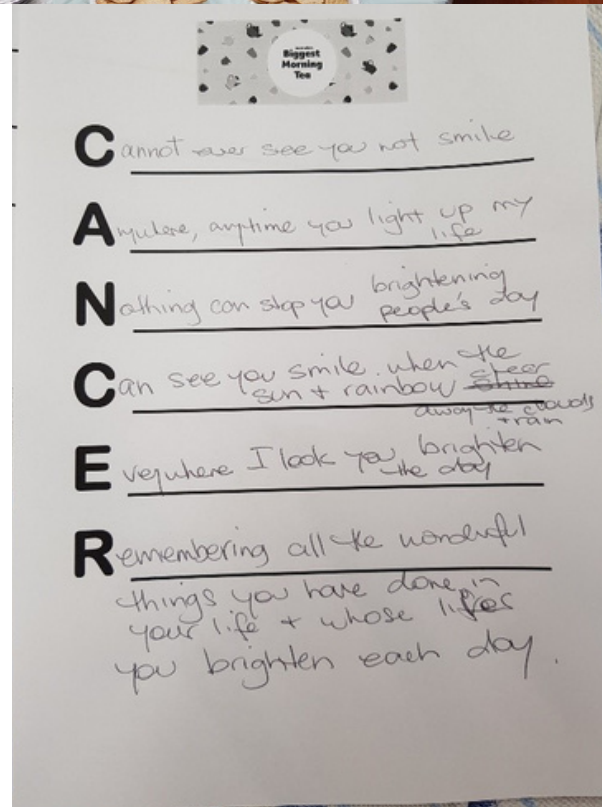 Biggest
Morning
Tea
Cannot ever see you not smile
Anywhere, anytime you light up my
life
Nothing can stop you brightening
people's day
Can see you smile. when the
sun + rainbow steer
away the clouds
+ rain
Everywhere I look you brighten
the day
Remembering all the wonderful
things you have done in
your life + whose lifes
you brighten each day.